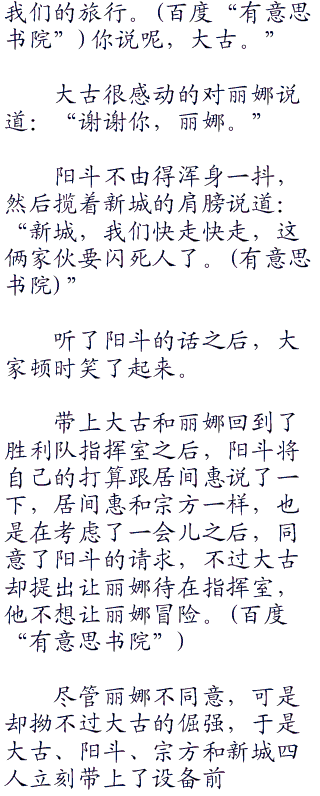 我们的旅行。(百度“有意思
书院”)你说呢，大古。”
大古很感动的对丽娜说
道：“谢谢你，丽娜。”
阳斗不由得浑身一抖，
然后揽着新城的肩膀说道：
“新城，我们快走快走，这
俩家伙要闪死人了。(有意思
书院)”
听了阳斗的话之后，大
家顿时笑了起来。
带上大古和丽娜回到了
胜利队指挥室之后，阳斗将
自己的打算跟居间惠说了一
下，居间惠和宗方一样，也
是在考虑了一会儿之后，同
意了阳斗的请求，不过大古
却提出让丽娜待在指挥室，
他不想让丽娜冒险。(百度
“有意思书院”)
尽管丽娜不同意，可是
却拗不过大古的倔强，于是
大古、阳斗、宗方和新城四
人立刻带上了设备前